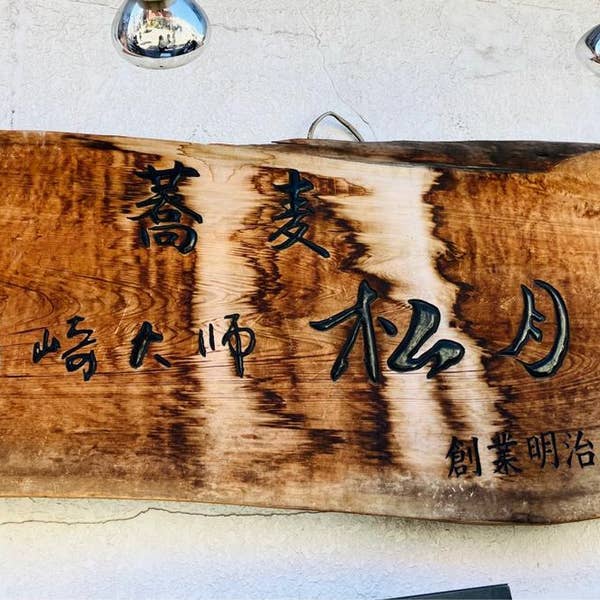 蕎麦
崎大师 松月
創業明治